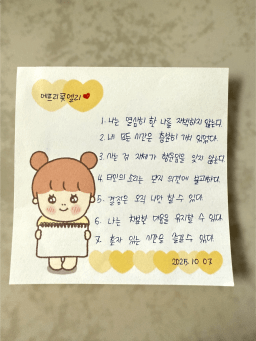 에프리쿳델리
1. 나는 열심히 한 나를 재백하지 않는다
2. 내 모든 시간은 충분히 가치 있었다.
3. 사는 것 자체가 행운임을 잊지 않는다.
4. 타인의 소리는 단지 의견에 불과하다.
5. 결정은 오직 나만 할 수 있다
6. 나는 차분한 마음을 유지할 수 있다.
7. 혼자 있는 시간을 즐길 수 있다.
2025. 10. 03